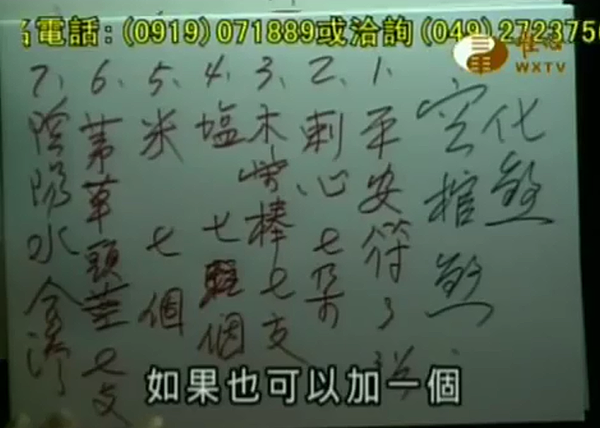 電話:(0919)071889或洽詢(049)272375
唯心
WXTV
化煞
空棺煞
1、平安符
2、刺心七
3、木 棒七支
4、塩七 個
5、米七個
6、茅草頭 七支
7、陰陽水
如果也可以加一個